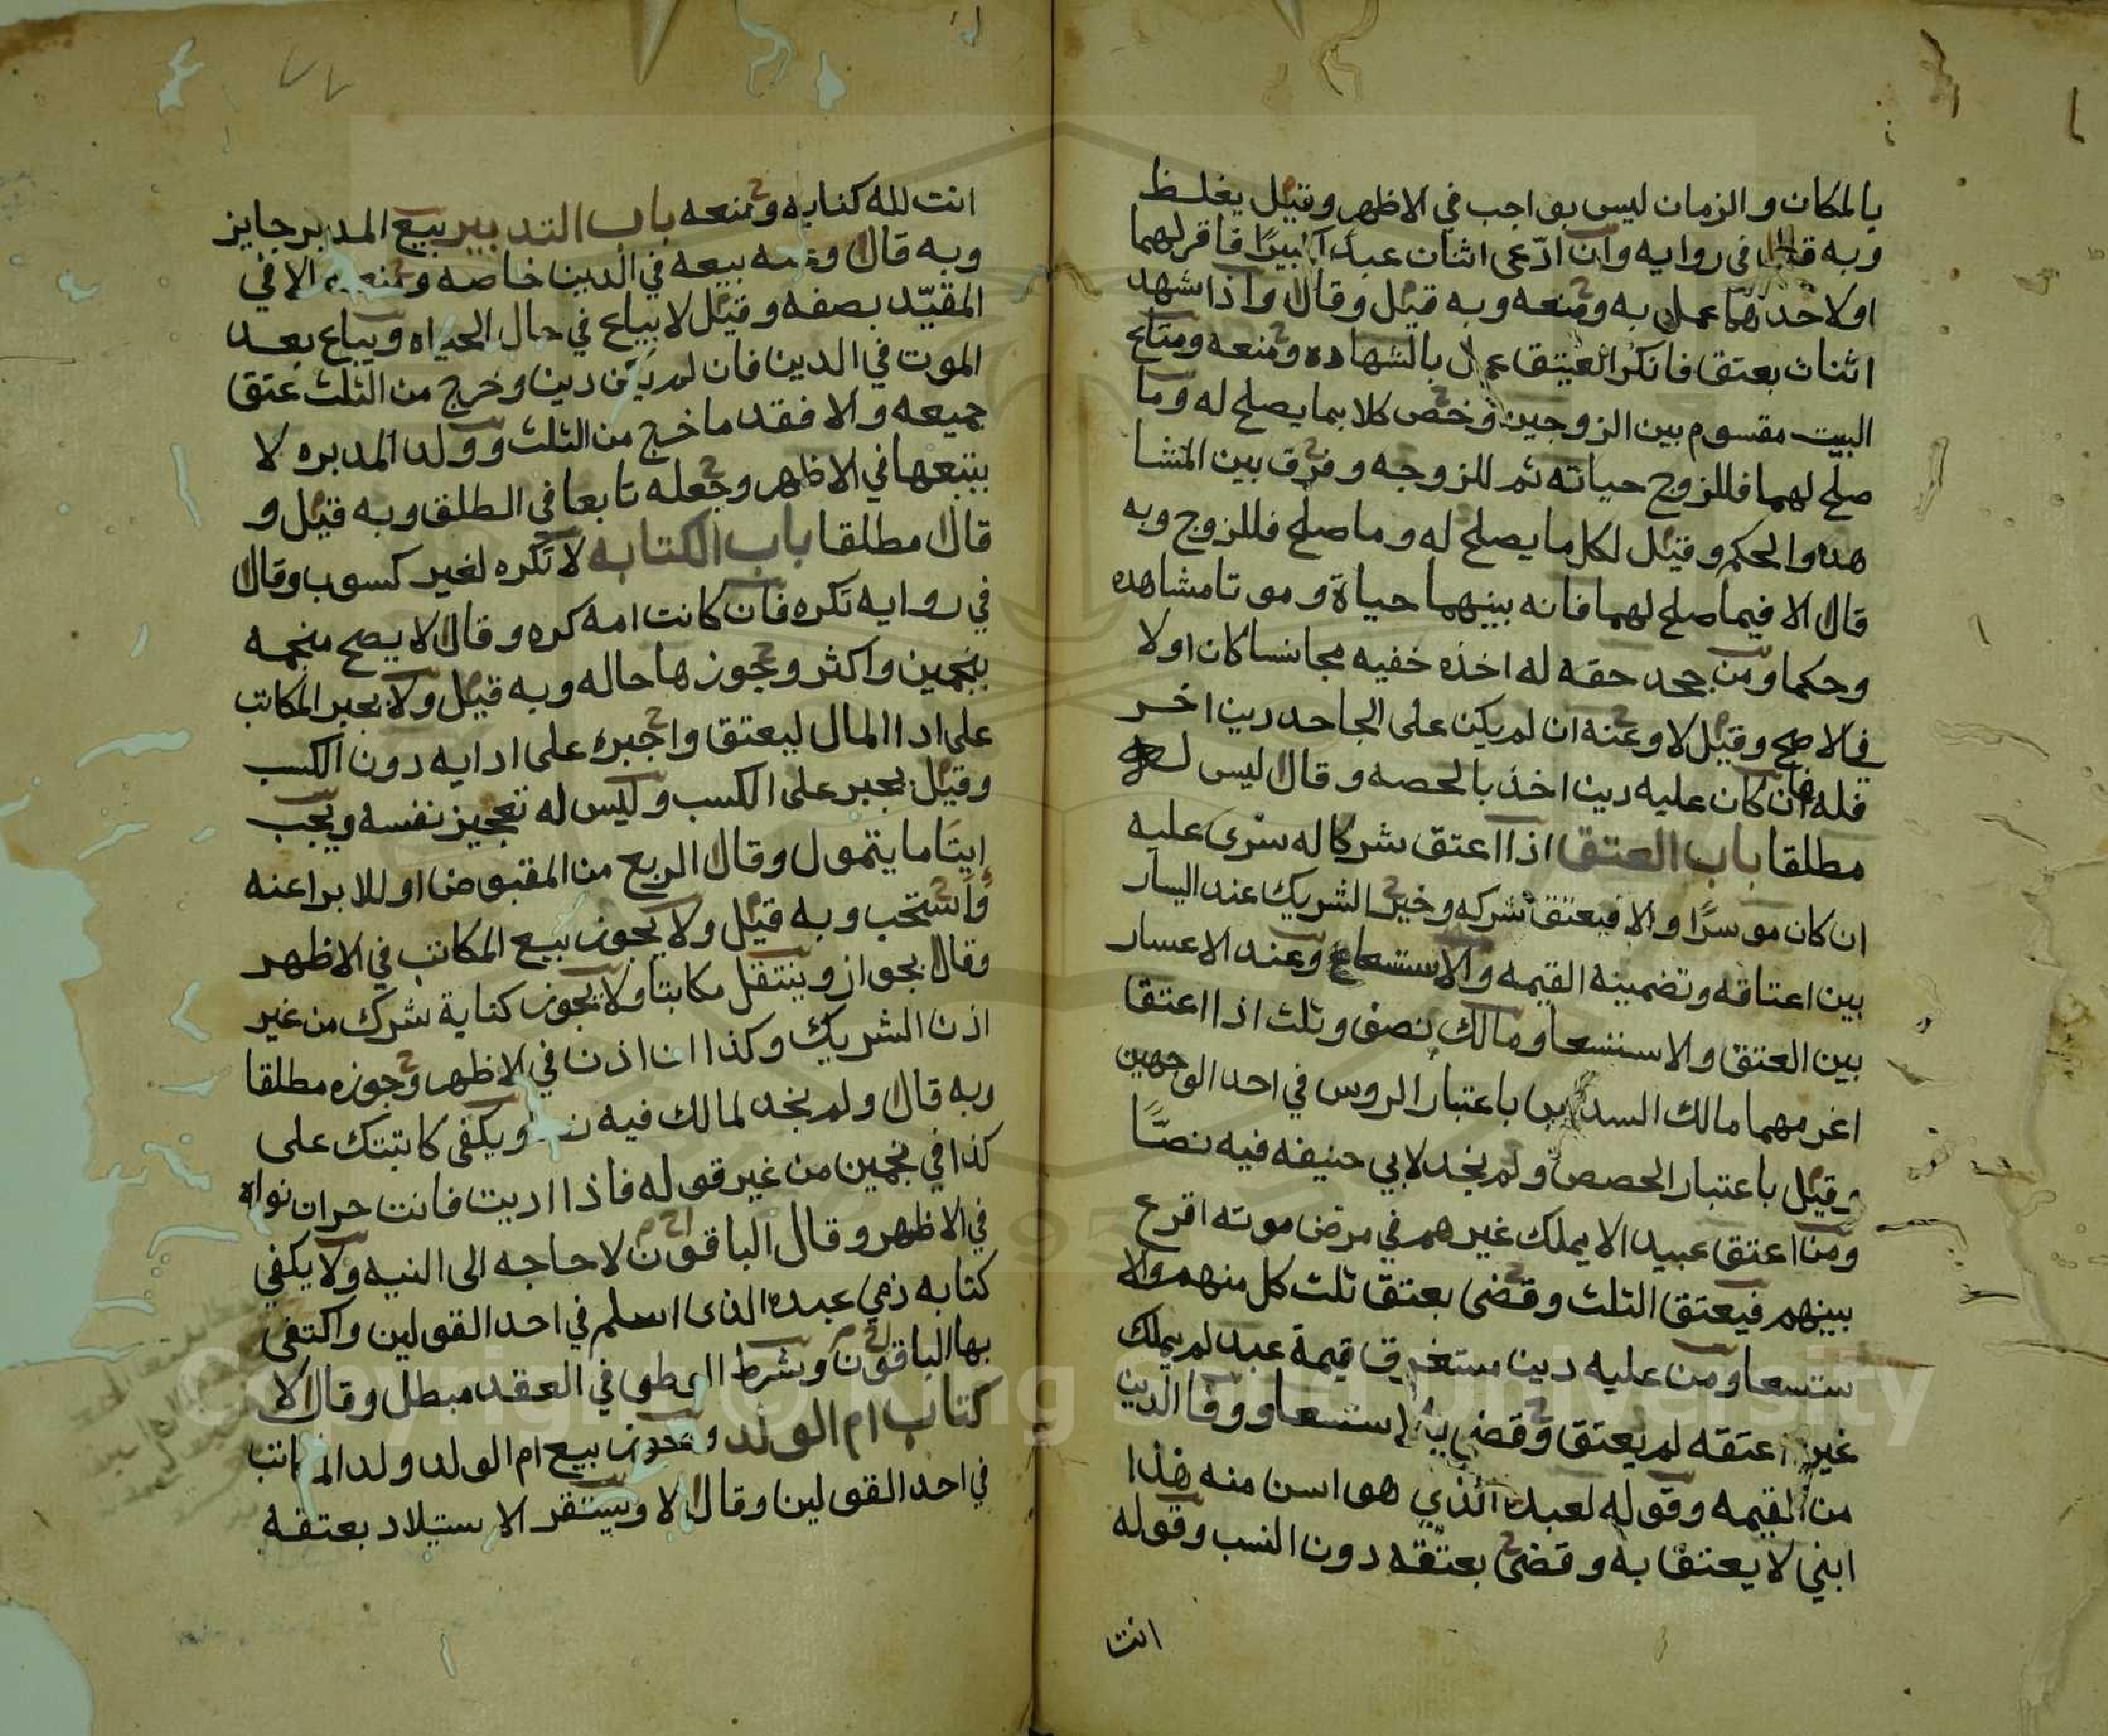 بالمكان والزمان ليس بواجب في الاظهر وقيل يغلظ
وبه قال في روايه وان ادّعى اثنان عبدا كبيرًا فاقر لهما
او لاحدهما عمل به ومنعه وبه قيل وقال واذا شهد
اثنان بعتق فانكر العتيق عمل بالشهاده ومنعه ومتاع
البيت مقسوم بين الزوجين وخص كلا بما يصلح له وما
صلح لهما فللزوج حياته ثم للزوجه وفرق بين المشا
هده والحكم وقيل لكل ما يصلح له وما صلح فللزوج وبه
قال الا فيما صلح لهما فانه بينهما حياة وموتا مشاهده
وحكما ومن جحد حقه له اخذه خفيه مجانسا كان او لا
في الاصح وقيل لا وعنه ان لم يكن على الجاحد دين اخر
فله فان كان عليه دين اخذ بالحصه وقال ليس له
مطلقا باب العتق اذا اعتق شركا له سرى عليه
ان كان موسرًا والا فيعتق شركه وخير الشريك عند اليسار
بين اعتاقه وتضمينه القيمه والاستسعا وعند الاعسار
بين العتق والاستسعا ومالك نصف وثلث اذا اعتقا
اغرمهما مالك السدس باعتبار الروس في احد الوجهين
وقيل باعتبار الحصص ولم نجد لابي حنيفه فيه نصًّا
ومن اعتق عبيدا لا يملك غيرهم في مرض موته اقرع
بينهم فيعتق الثلث وقضى بعتق ثلث كل منهم والا
ستسعا ومن عليه دين مستغرق قيمة عبد لم يملك
غيره اعتقه لم يعتق وقضى به الاستسعا ووفا الدين
من القيمه وقوله لعبده الذي هو اسن منه هذا
ابني لا يعتق به وقضى بعتقه دون النسب وقوله
انت
انت لله كنايه ومنعه باب التدبير بيع المدبر جايز
وبه قال وعنه بيعه في الدين خاصه ومنعه الا في
المقيّد بصفه وقيل لا يباع في حال الحياه ويباع بعد
الموت في الدين فان لم يكن دين وخرج من الثلث عتق
جميعه والا فقدر ما خرج من الثلث وولد المدبره لا
يتبعها في الاظهر وجعله تابعا في الطلق وبه قيل و
قال مطلقا باب الكتابه لا تكره لغير كسوب وقال
في روايه تكره فان كانت امه كره وقال لا يصح منجمه
بنجمين واكثر وجوزها حاله وبه قيل ولا يجبر المكاتب
على ادا المال ليعتق واجبره على ادايه دون الكسب
وقيل يجبر على الكسب وليس له تعجيز نفسه ويجب
إيتاما يتمول وقال الربع من المقبوض او للابرا عنه
واستحب وبه قيل ولا يجوز بيع المكاتب في الاظهر
وقال بجواز وينتقل مكاتبا ولا يجوز كتابة شرك من غير
اذن الشريك وكذا ان اذن في الاظهر وجوزه مطلقا
وبه قال ولم نجد لمالك فيه ويكفي كاتبتك على
كذا في نجمين من غير قوله فاذا اديت فانت حر ان نواه
في الاظهر وقال الباقون لا حاجه الى النيه ولا يكفي
كتابه ذمي عبده الذي اسلم في احد القولين واكتفى
بها الباقون وشرط الوطى في العقد مبطل وقال لا
كتاب ام الولد ويجوز بيع ام الولد وولد المكاتب
في احد القولين وقال لا ويستقر الاستيلاد بعتقه
Copyright © King Saud University